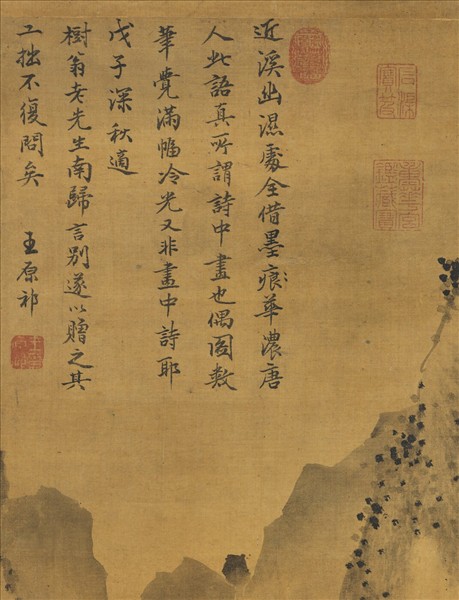 近溪幽濕處全借墨痕筆濃唐
人此語真所謂詩中畫也偶圖數
筆覺滿幅冷光又非畫中詩耶
戊子深秋適
樹翁老先生南歸言別遂以贈之其
工拙不復問矣 王原祁